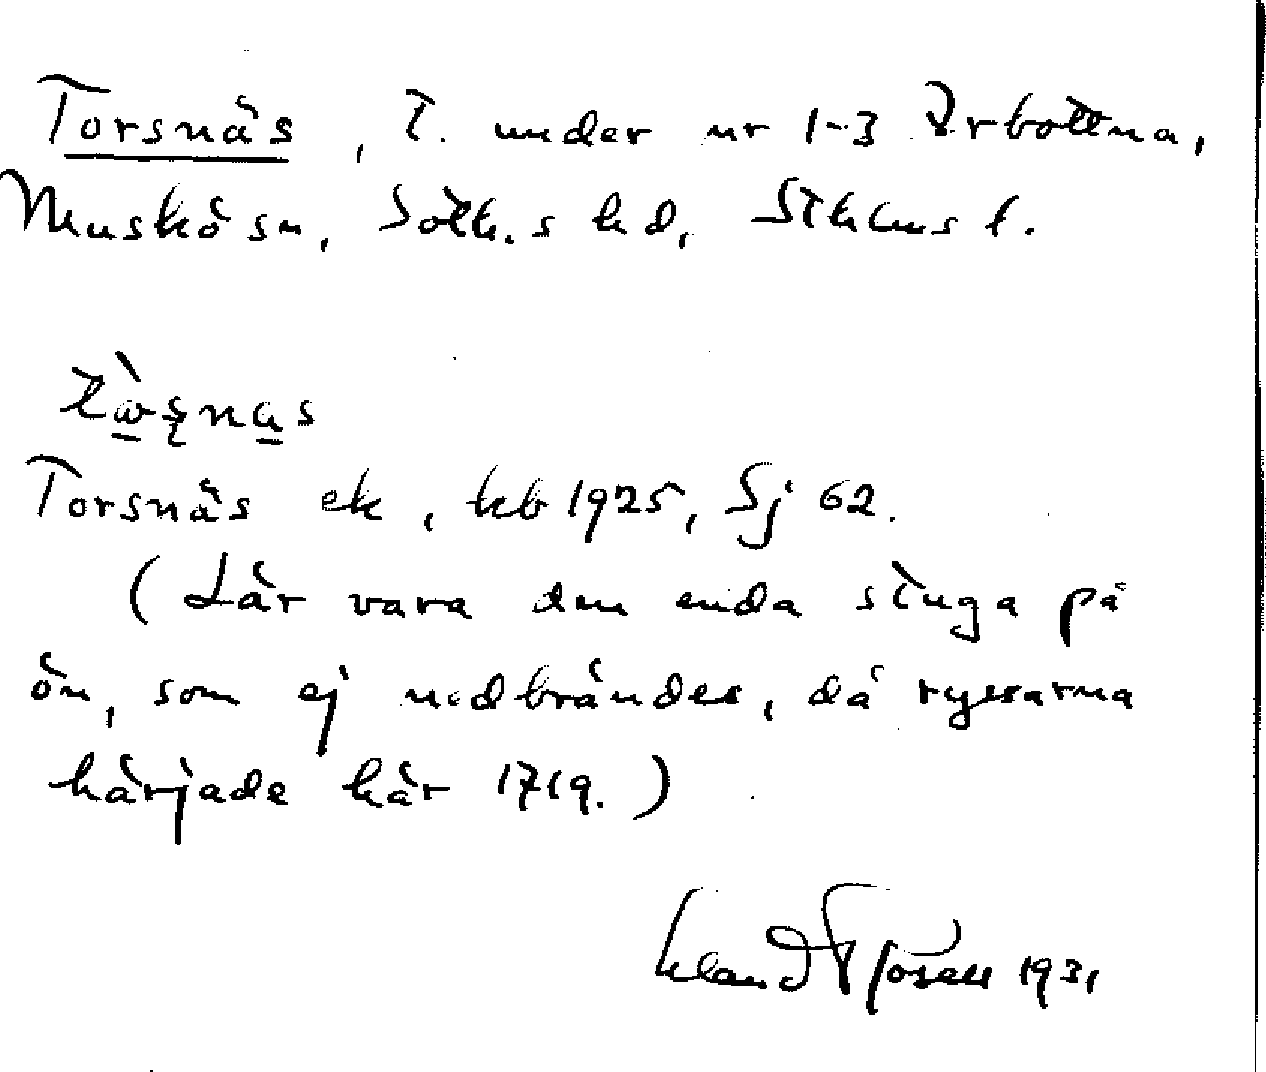 Torsnäs, T. under nr 1-3 Arbottna,
Muskö sn, Soth.s hd, Sthlms l.
Torsnäs ek, kb 1925, Sj 62.
(Lär vara den enda stuga på
ön, som ej nedbrändes, då ryssarna
härjade här 1719.)
1931